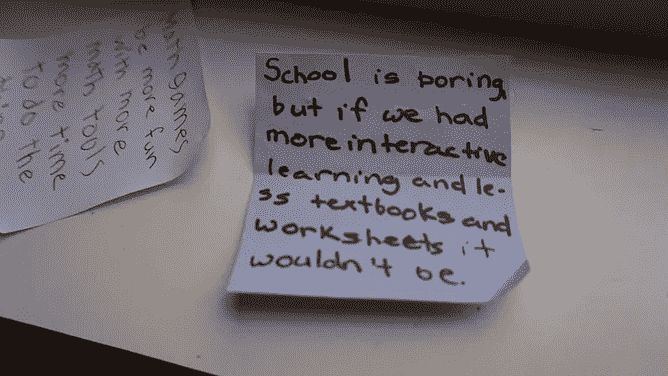 Math games
be more fun
with more
math tools
more time
to do the
School is boring
but if we had
more interactive
learning and le-
ss textbooks and
worksheets it
wouldn't be.